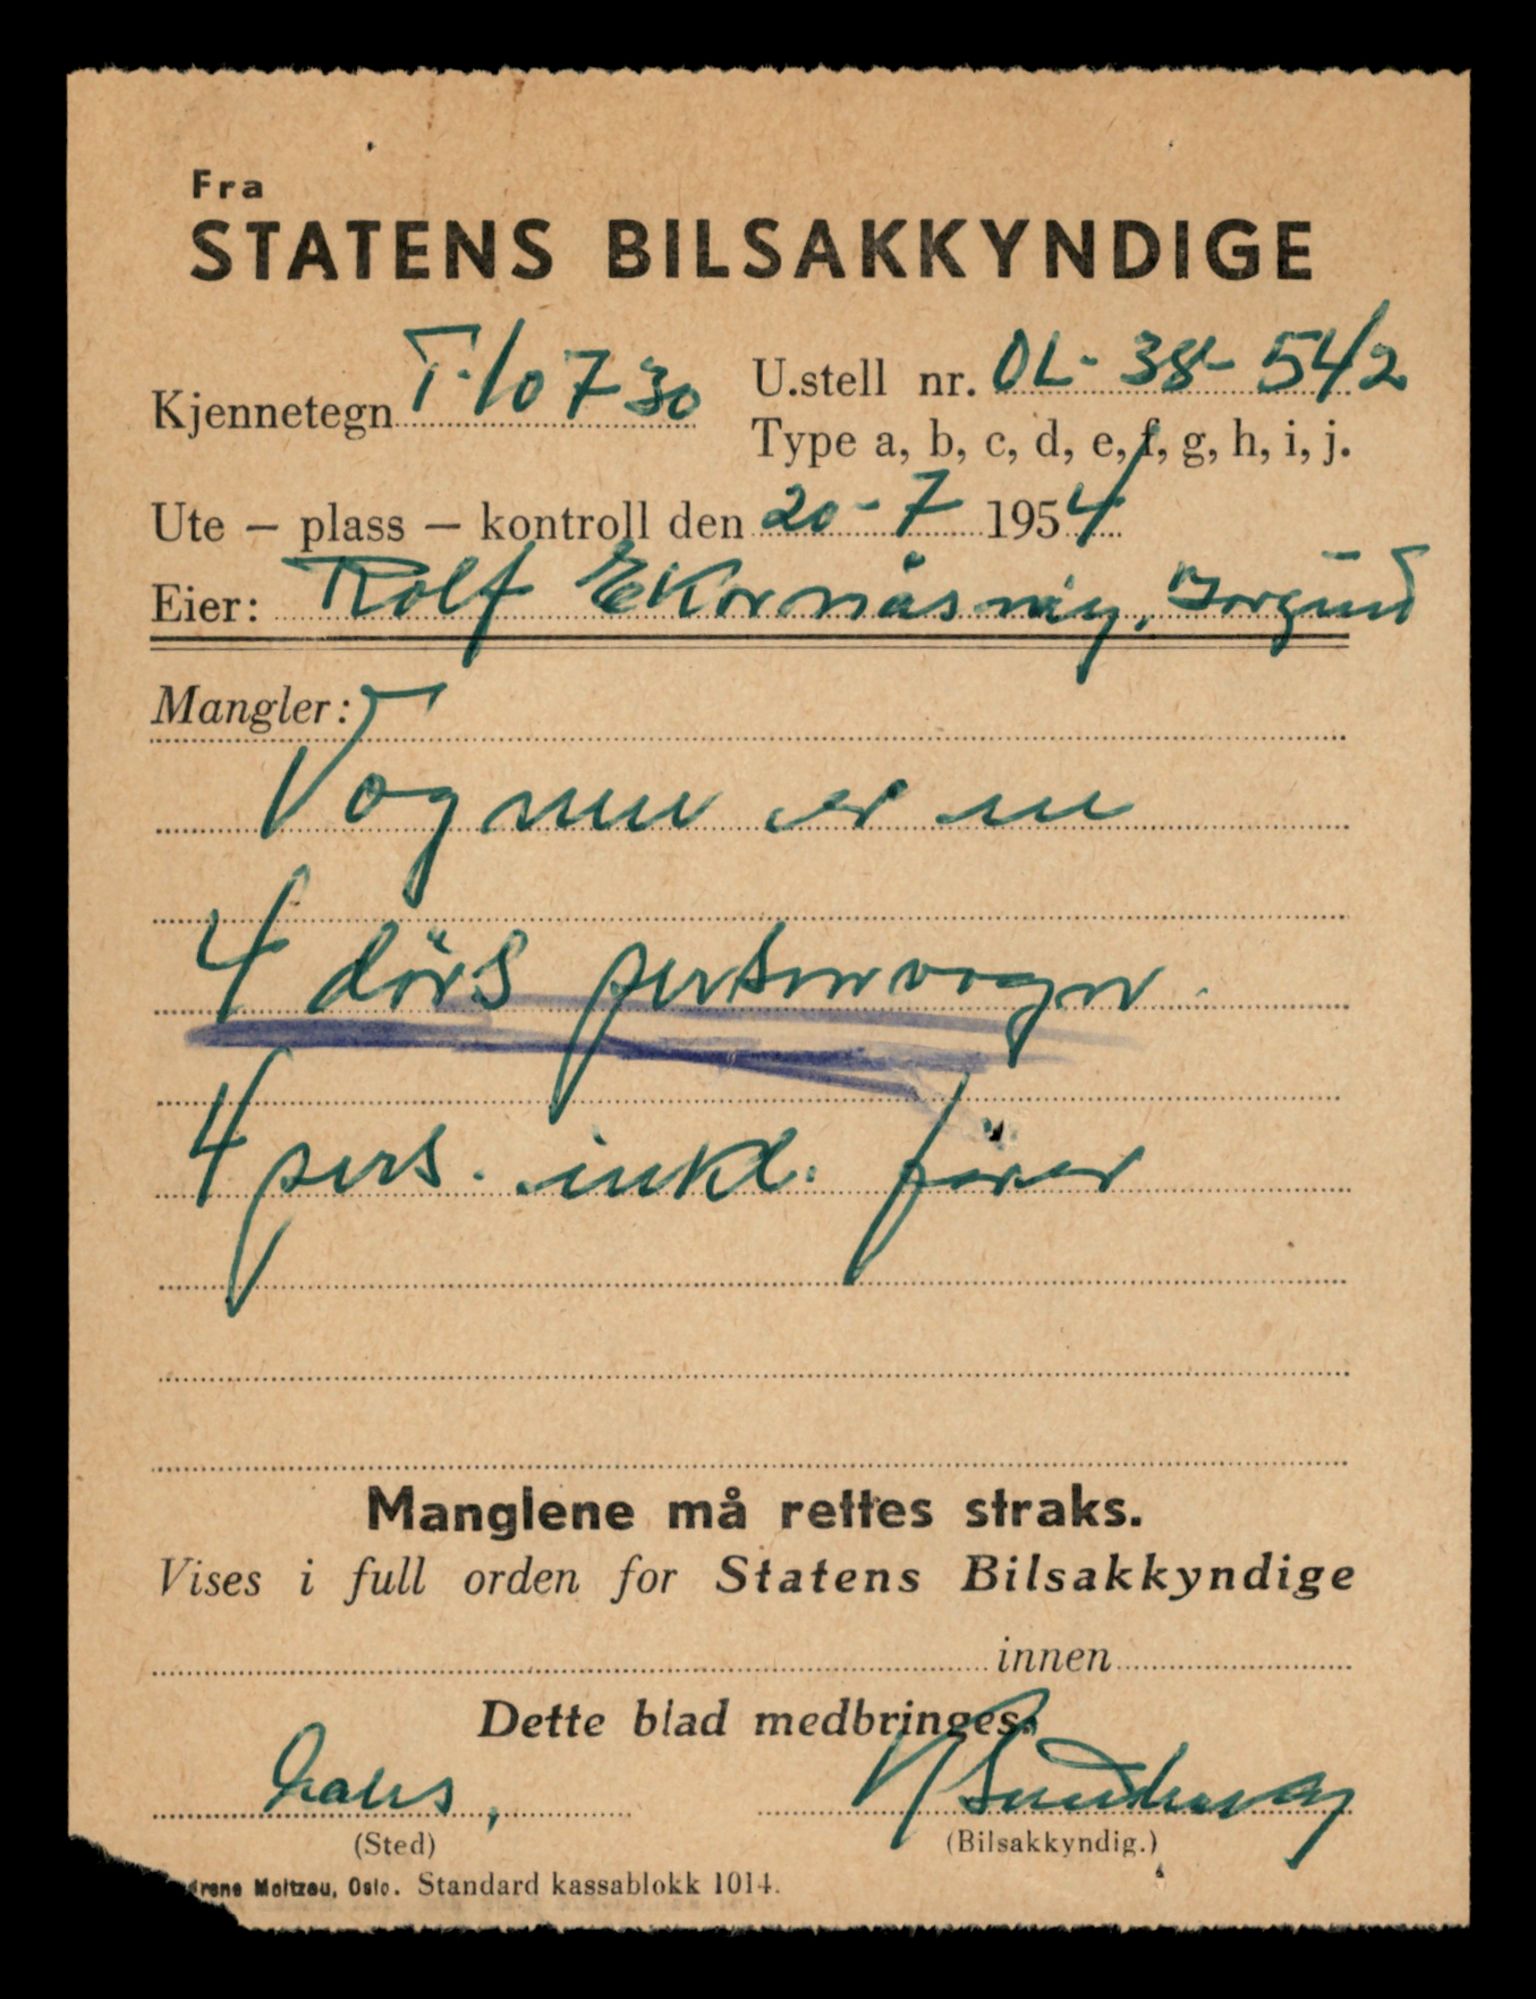 Fra
STATENS BILSAKKYNDIGE
Kjennetegn T-10730 U.stell nr. OL-38-542
Type a, b, c, d, e, f, g, h, i, j.
Ute – plass – kontroll den 20-7 1954
Eier: Rolf Ekornåsvåg, Borgund
Mangler:
Vognen er en
4 dörs personvogn.
4 pers. inkl. förer
Manglene må rettes straks.
Vises i full orden for Statens Bilsakkyndige
innen
Dette blad medbringes.
(Sted) (Bilsakkyndig.)
Moltzau, Oslo. Standard kassablokk 1014.